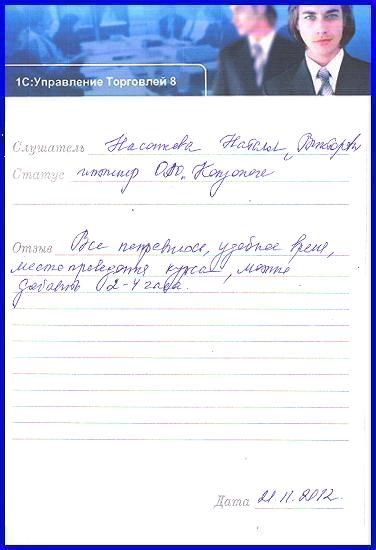 1С:Управление Торговлей 8
Слушатель Наталья
Статус инженер ОАО
Отзыв Все понравилось, удобное время,
место проведения курса, можно
добавить 2-4 часа.
Дата 21.11.2012.